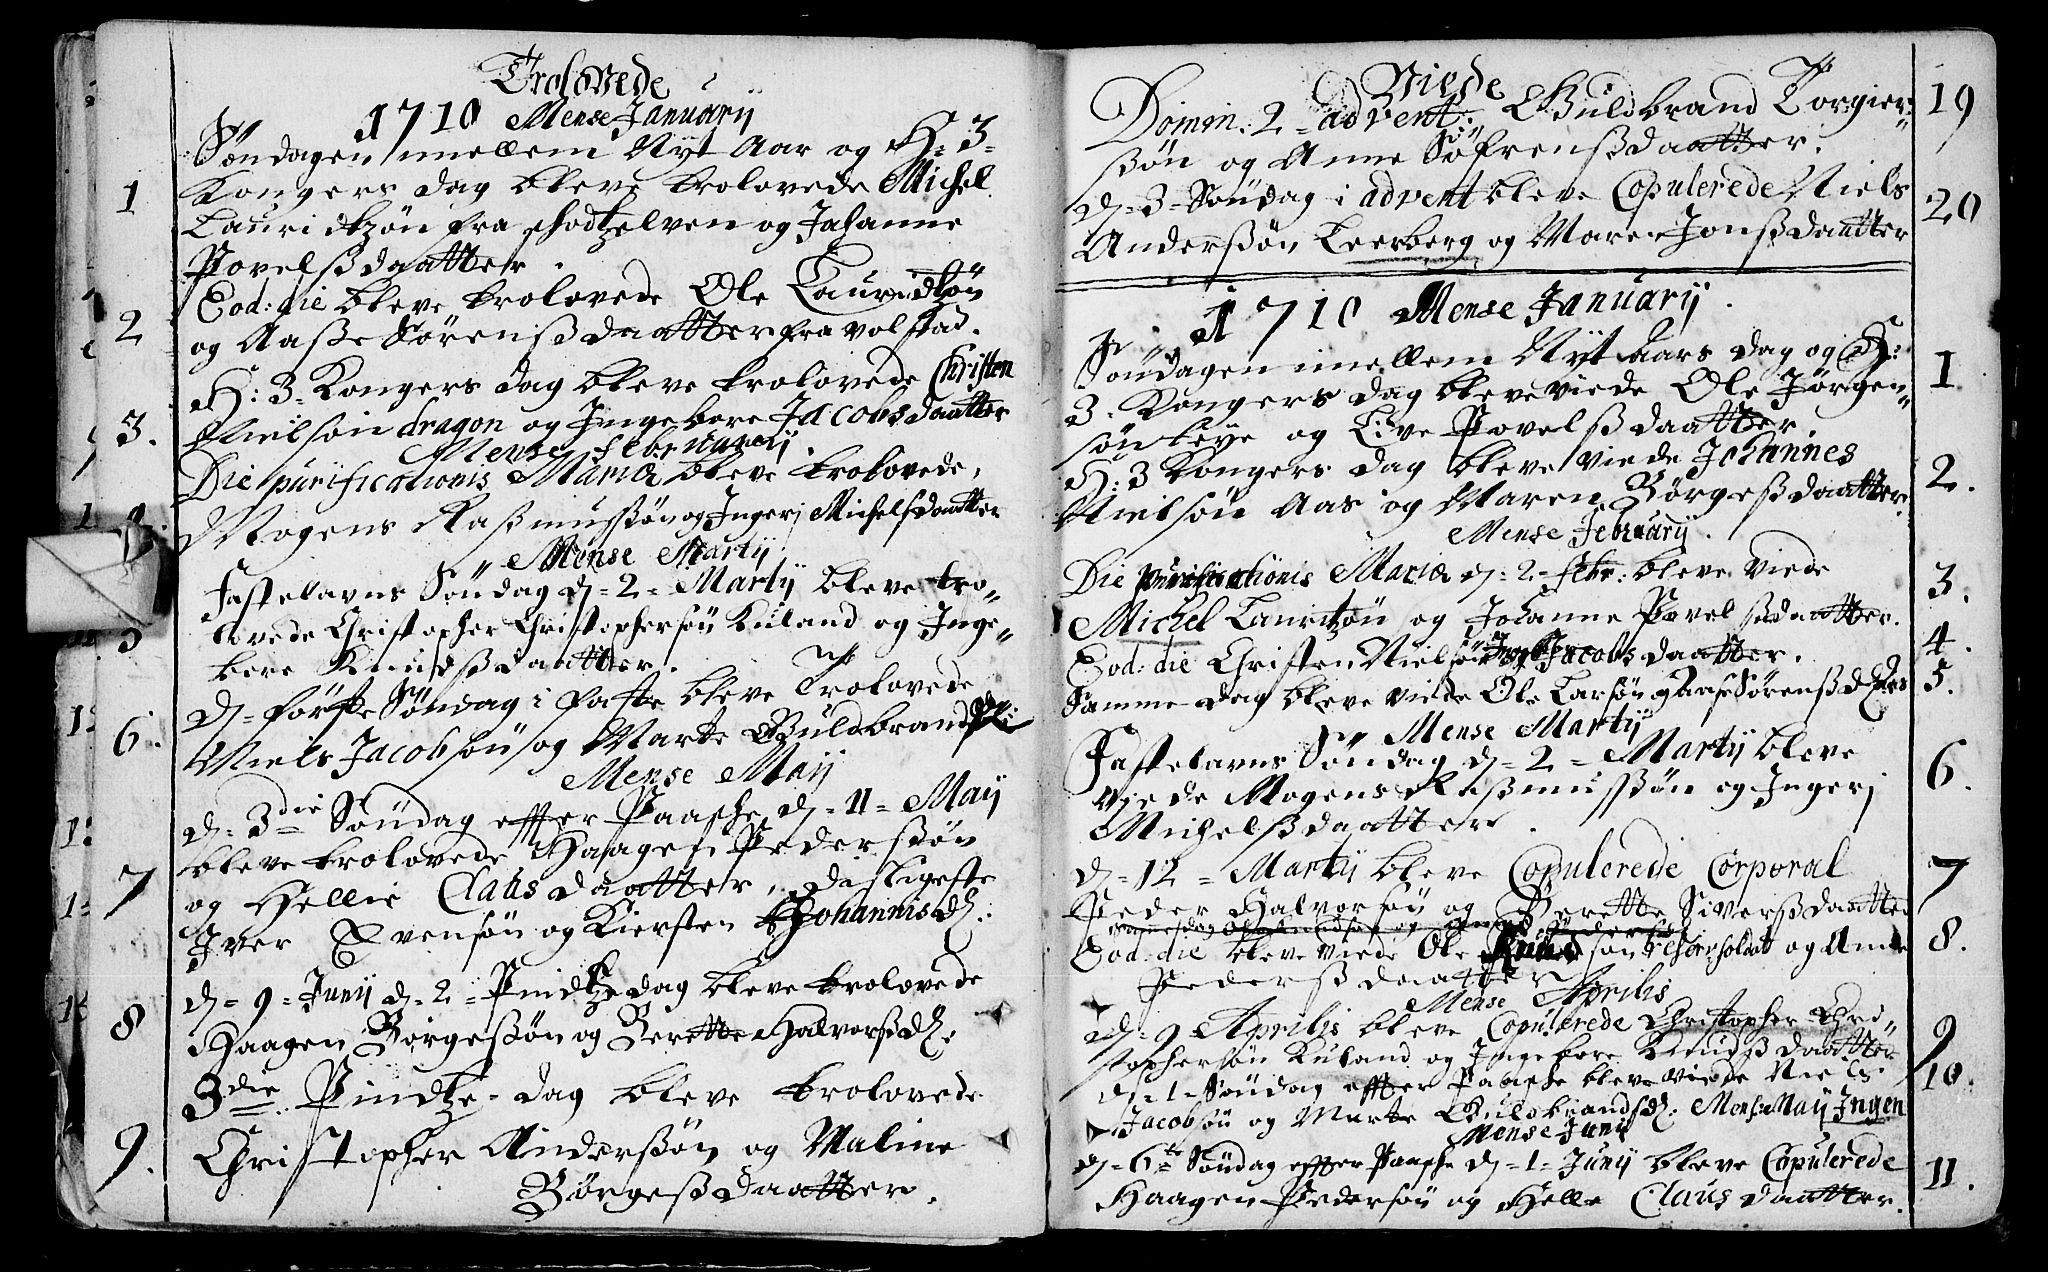 Trolovede
1710 Mense Januarij
Søndagen imellem Nyt Aar og H: 3=
1 Kongers dag bleve trolovede Michel
Lauridtzøn fra skodtzelven og Johanne
Povelsdaatter.
Eod: die bleve trolovede Ole Lauridtzøn
2 og Aasse Sørensdaatter fra volstad.
H: 3= Kongers dag bleve trolovede Christen
3. Nielsøn dragon og Ingebore Jacobsdaatter
Mense Februarij
Die purificationis Mariæ bleve trolovede,
4. Mogens Rasmussøn og Ingerj Michelsdaatter
Mense Martij
Fastelavns Søndag d= 2= Martij bleve tro=
5 lovede Christopher Christophersøn Kuland og Inge=
bore Knudsdaatter.
d= første Søndag i faste bleve Trolovede
6. Niels Jacobsøn og Marte Guldbrandsd:
Mense Maij
d= 3die Søndag effter Paaske d= 11= Maij
bleve trolovede Haagen Pederssøn
7 og Hellie Clausdaatter, disligeste
Iver Evensøn og Kiersten Johannisd:
d= 9= Junij d= 2= Pindtzedag bleve trolovede
8 Haagen Børgessøn og Berette Halvorsd:
3die Pindtze=dag bleve trolovede
9. Christopher Anderssøn og Maline
Børgesdaatter.
Viede
Domin: 2= advent: Guldbrand Torgier= 19
ssøn og Anne Søfrensdaatter.
d= 3= Søndag i advent bleve Copulerede Niels 20
Anderssøn Leerberg og Maren Jonsdaatter
1710 Mense Januarij.
Søndagen imellem Nyt aars dag og H: 1
3= Kongers dag bleve viede Ole Jørgen=
søn Leye og Live Povelsdaatter
H: 3 Kongers dag bleve viede Johannes 2.
Nielsøn Aas og Maren Børgesdaatter.
Mense Februarij.
Die purificationis Mariæ d= 2= febr: bleve viede 3.
Michel Lauritzøn og Johanne Povelsdaatter.
Eod: die Christen Nielsøn Ingb: Jacobsdaatter. 4.
Samme dag bleve viede Ole Larsøn og Aase Sørensd: 5.
Mense Martij
Fastelavns Søndag d= 2= Martij bleve
viede Mogens Rasmussøn og Ingerj 6.
Michelsdaatter.
d= 12= Martij bleve Copulerede Corporal 7
Peder Halvorsøn og Berette Siversdaatter
Eod: die bleve viede Ole søn og Anne 8.
Pedersdaatter
Mense Aprilis
d= 9 Aprilis bleve Copulerede Christopher Chri= 9
stophersøn Kuland og Ingebore Knudsdaatter
d= 1= Søndag effter Paaske bleve viede Niels 10.
Jacobsøn og Marte Guldbrandsd: Mense Maij Ingen
Mense Junij
d= 6te Søndag effter Paaske d= 1= Junij bleve Copulerede
Haagen Pedersøn og Helle Clausdaatter. 11.